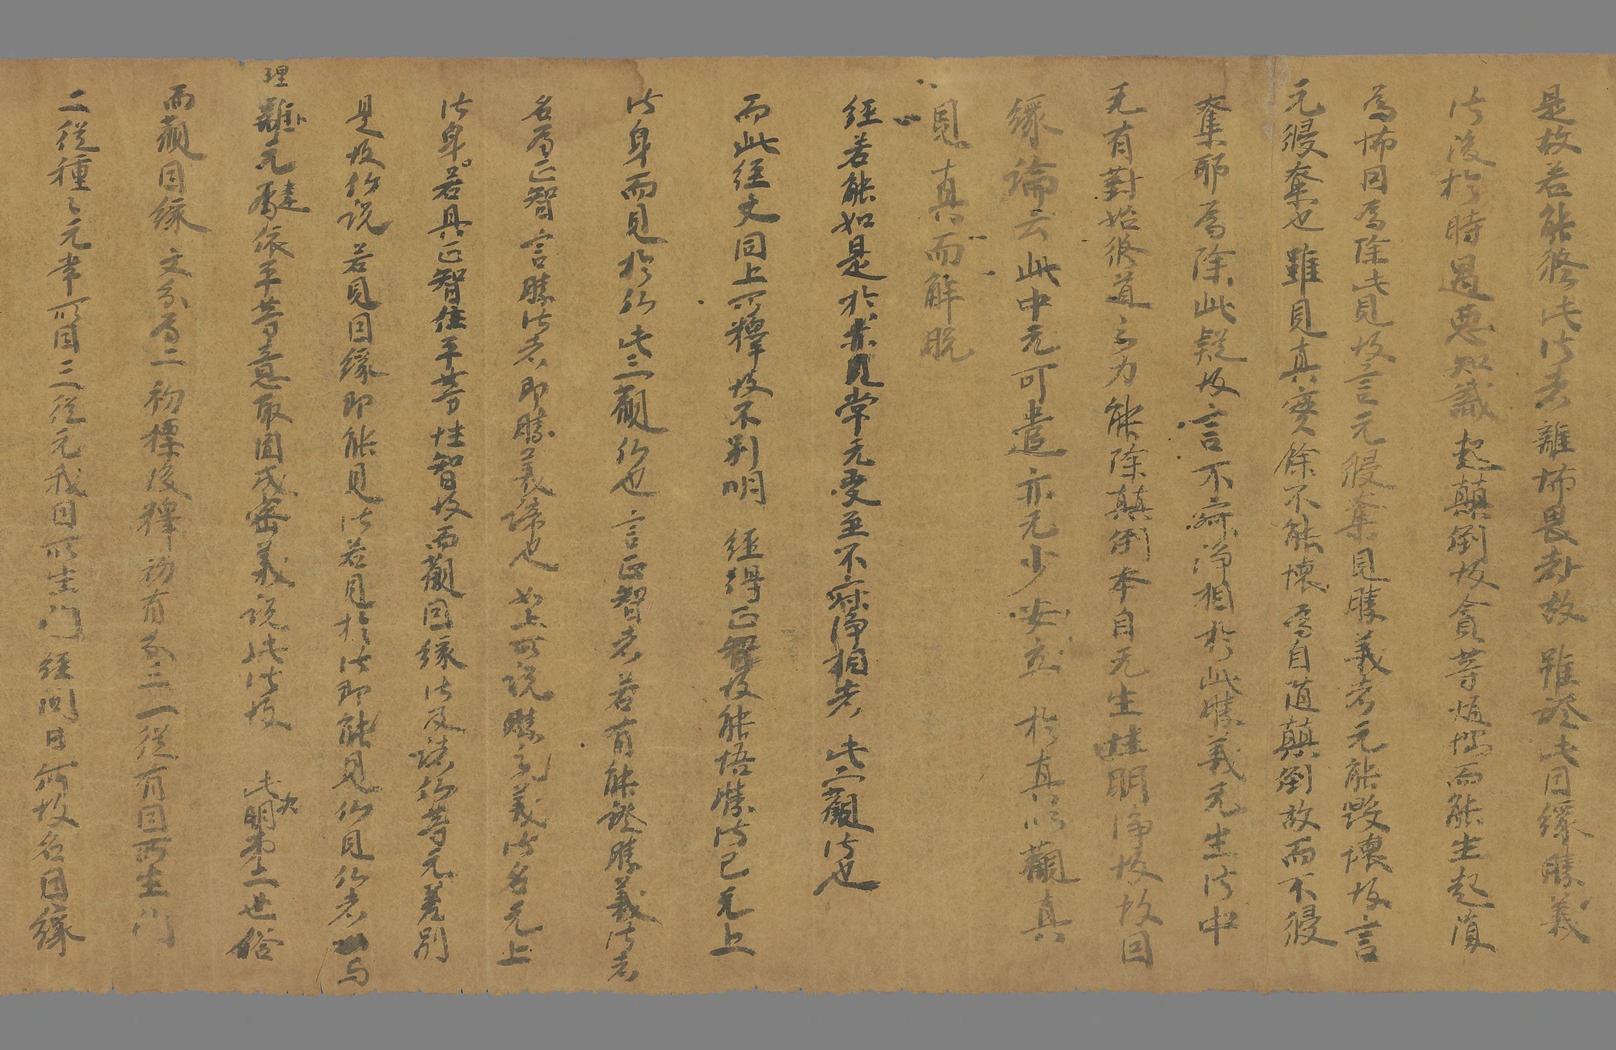 是故若能修此法者離怖畏劫故雖證此因緣勝義
法後於時遇惡知識起顛倒故貪等煩惱而能生起復
為怖因為除此見故言无侵奪見勝義者无能毀壞故言
无侵奪也雖見真實餘不能壞為自道顛倒故而不侵
奪耶為除此疑故言不寂淨相於此勝義无生法中
无有對始終道之力能除顛倒本自无生性明淨故故因
緣論云此中无可遣亦无少安立於真以觀真
見真而解脫
經若能如是於亦見常无受至不寂淨相者此二觀法也
而此經文同上所釋故不别明經得正智故能悟勝法已无上
法身而見於仏此三觀仏也言正智者若有能證勝義法者
名為正智言勝法者即勝義諦也如上所說勝之義法名无上
法身若具正智住平等性智故而觀因緣法及諸仏等无差别
是故仏說若見因緣即能見法若見於法即能見仏見仏者与
理離无乖依平等意取固成密義說此法故此次明第二世俗
而觀因緣文分為二初標後釋初有分三一從有因所生門
二從種々无常所因三從无我因所生門經問曰何故名因緣